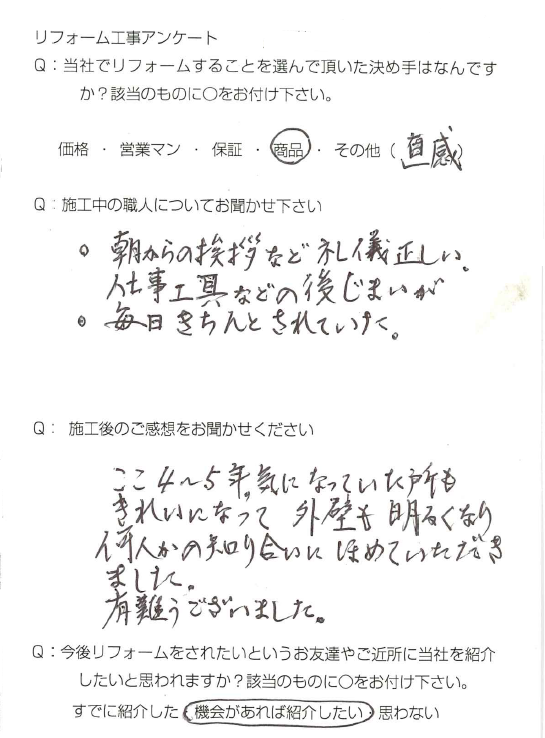 リフォーム工事アンケート
Q：当社でリフォームすることを選んで頂いた決め手はなんです
か？該当のものに〇をお付け下さい。
価格 ・ 営業マン ・ 保証 ・ 商品 ・ その他（直感）
Q：施工中の職人についてお聞かせ下さい
○ 朝からの挨拶など礼儀正しい。
仕事工具などの後じまいが
○ 毎日きちんとされていた。
Q： 施工後のご感想をお聞かせください
ここ4〜5年、気になっていた所も
きれいになって 外壁も明るくなり
何人かの知り合いにほめていただき
ました。
有難うございました。
Q：今後リフォームをされたいというお友達やご近所に当社を紹介
したいと思われますか？該当のものに〇をお付け下さい。
すでに紹介した・機会があれば紹介したい・思わない